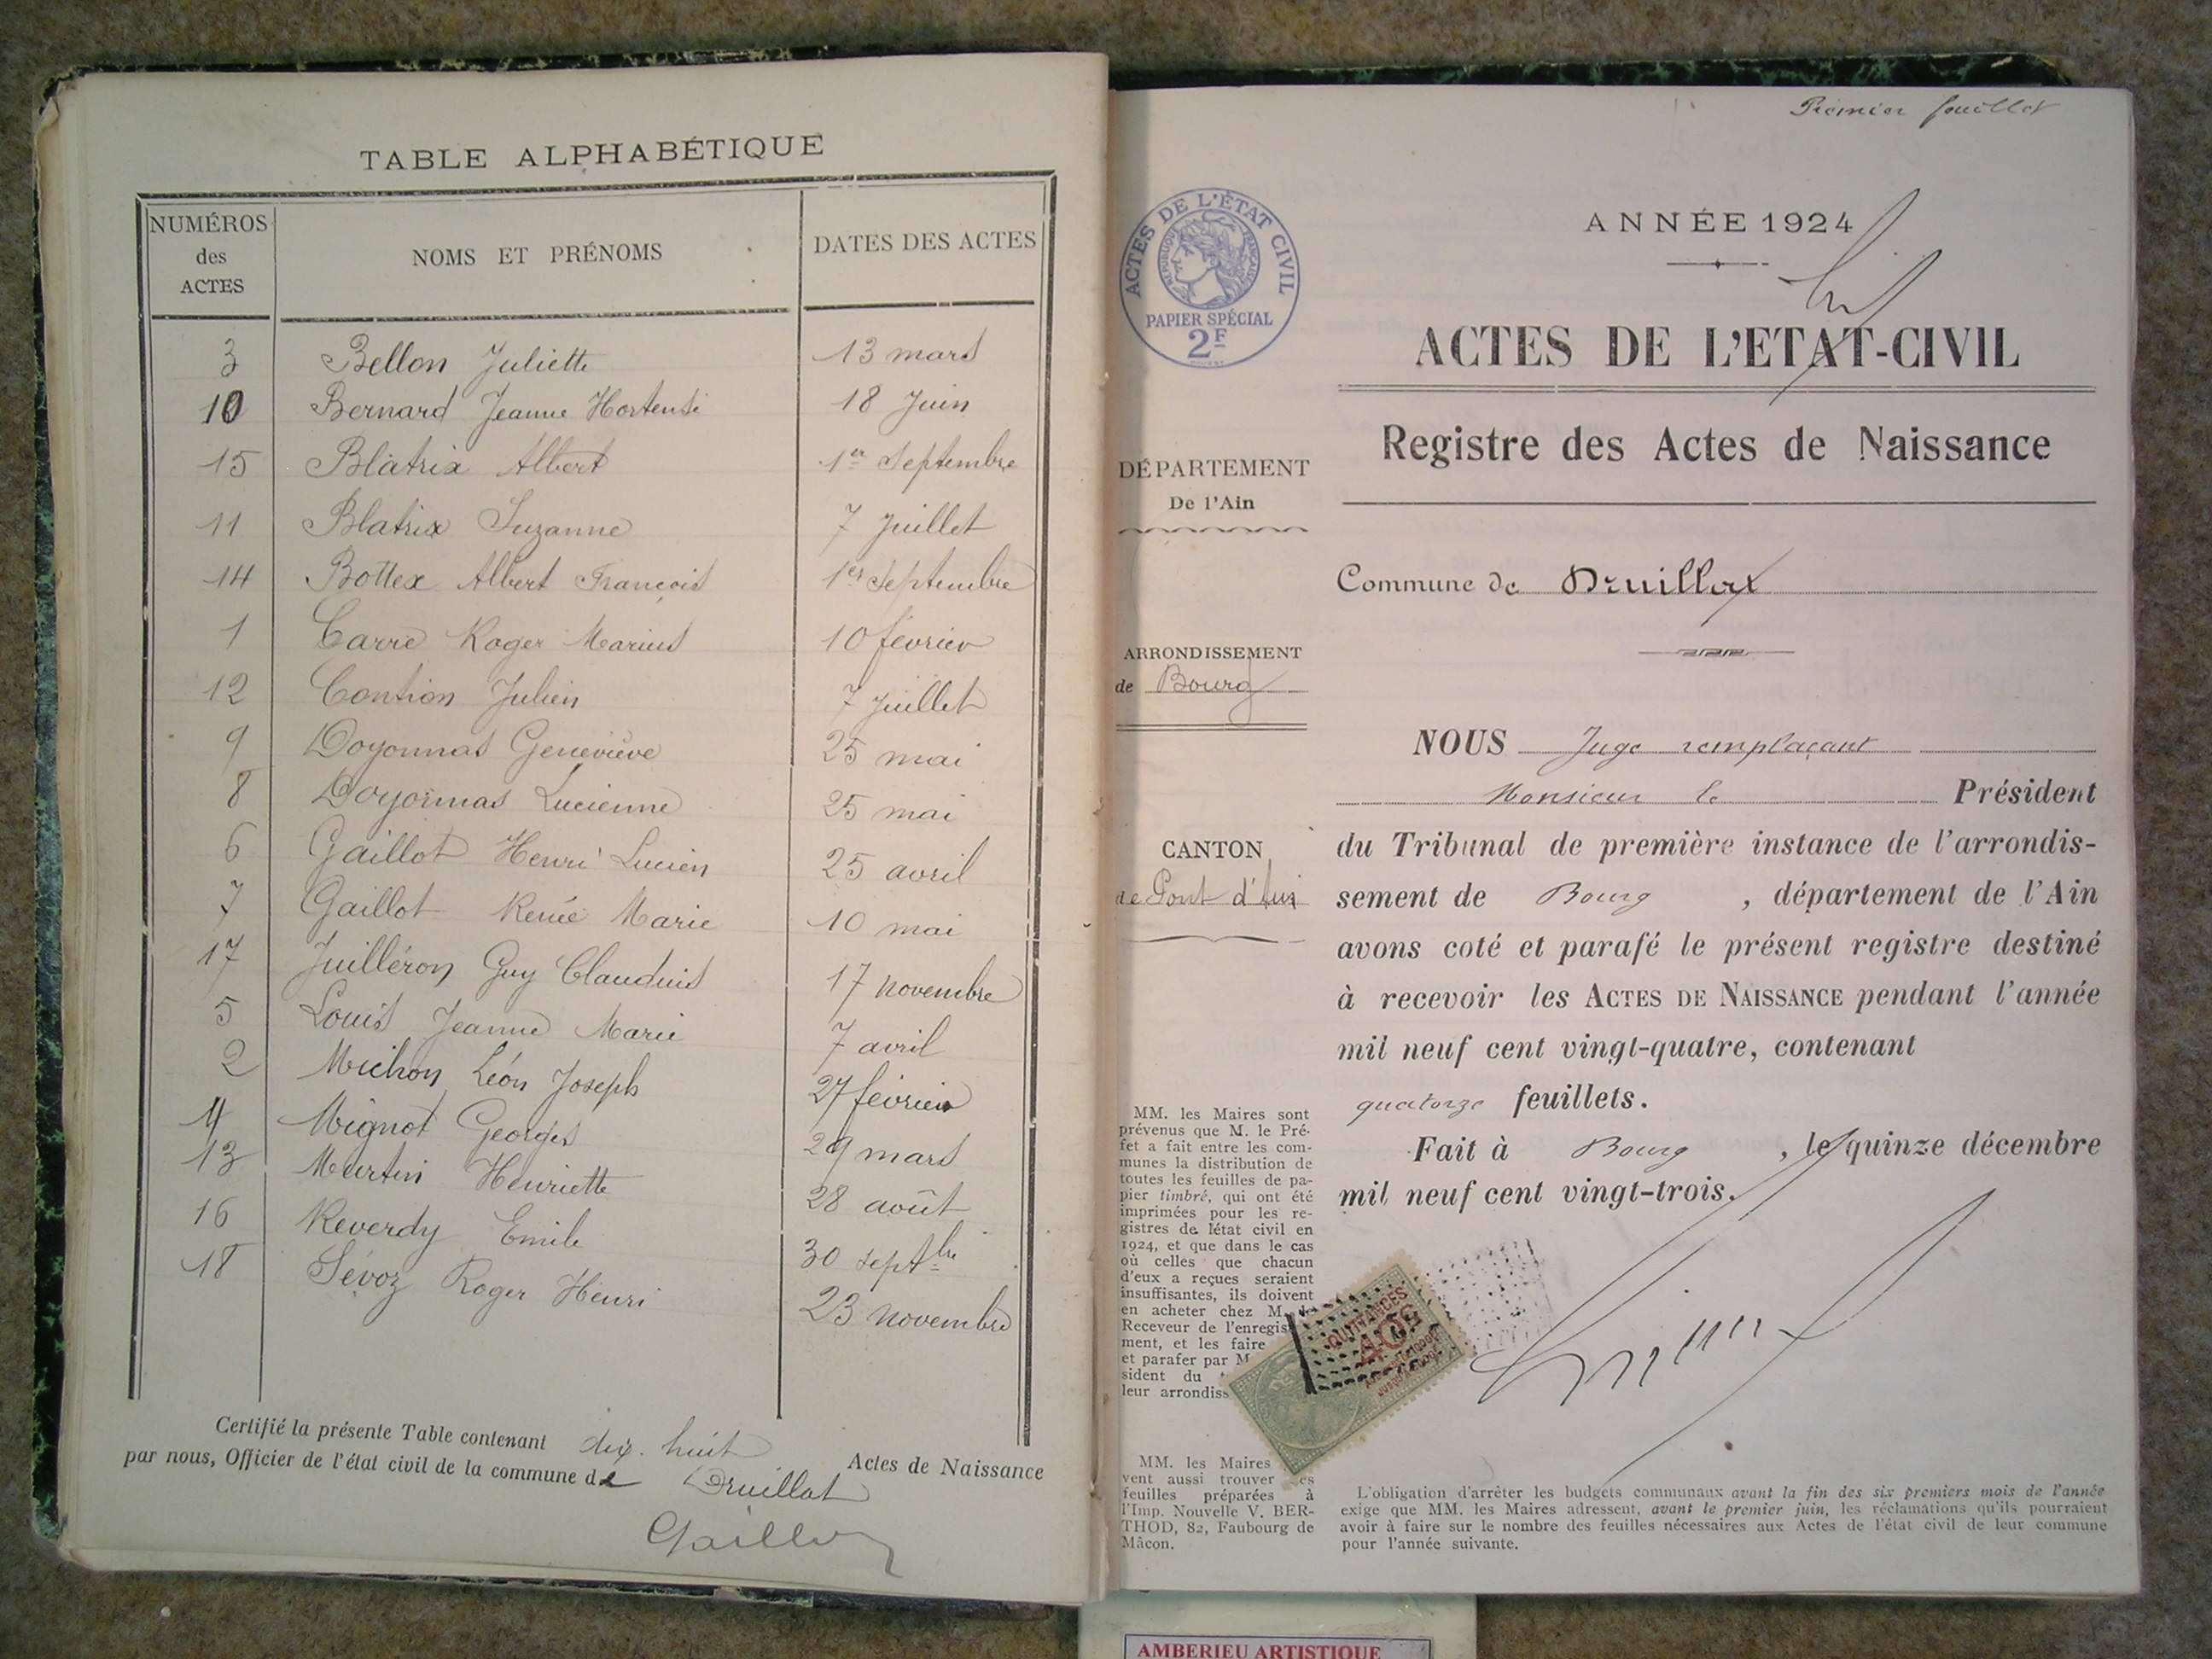 TABLE ALPHABÉTIQUE
NUMÉROS des ACTES NOMS ET PRÉNOMS DATES DES ACTES
3 Bellon Juliette 13 mars
10 Bernard Jeanne Hortense 18 Juin
15 Blatrix Albert 1er Septembre
11 Blatrix Suzanne 7 Juillet
14 Bottex Albert François 1er Septembre
1 Carre Roger Marius 10 février
12 Contion Julien 7 Juillet
9 Doyonnas Geneviève 25 mai
8 Doyonnas Lucienne 25 mai
6 Gaillot Henri Lucien 25 avril
7 Gaillot Renée Marie 10 mai
17 Juilléron Guy Claudius 17 novembre
5 Louis Jeanne Marie 7 avril
2 Michon Léon Joseph 27 février
4 Mignot Georges 29 mars
13 Murtin Henriette 28 août
16 Reverdy Emile 30 septbre
18 Sévoz Roger Henri 23 novembre
Certifié la présente Table contenant dix-huit Actes de Naissance
par nous, Officier de l'état civil de la commune de Druillat
Gaillot
Premier feuillet
ACTES DE L'ÉTAT CIVIL
RÉPUBLIQUE FRANÇAISE
PAPIER SPÉCIAL
2F
ANNÉE 1924
ACTES DE L'ETAT-CIVIL
Registre des Actes de Naissance
DÉPARTEMENT
De l'Ain
Commune de Druillat
ARRONDISSEMENT
de Bourg
CANTON
de Pont d'Ain
NOUS Juge remplaçant
Monsieur le Président
du Tribunal de première instance de l'arrondis-
sement de Bourg, département de l'Ain
avons coté et parafé le présent registre destiné
à recevoir les ACTES DE NAISSANCE pendant l'année
mil neuf cent vingt-quatre, contenant
quatorze feuillets.
Fait à Bourg, le quinze décembre
mil neuf cent vingt-trois.
MM. les Maires sont
prévenus que M. le Pré-
fet a fait entre les com-
munes la distribution de
toutes les feuilles de pa-
pier timbré, qui ont été
imprimées pour les re-
gistres de létat civil en
1924, et que dans le cas
où celles que chacun
d'eux a reçues seraient
insuffisantes, ils doivent
en acheter chez M. le
Receveur de l'enregis
ment, et les faire
et parafer par M
sident du
leur arrondis
QUITTANCES
40c
MM. les Maires
vent aussi trouver es
feuilles préparées à
l'Imp. Nouvelle V. BER-
THOD, 82, Faubourg de
Mâcon.
L'obligation d'arrêter les budgets communaux avant la fin des six premiers mois de l'année
exige que MM. les Maires adressent, avant le premier juin, les réclamations qu'ils pourraient
avoir à faire sur le nombre des feuilles nécessaires aux Actes de l'état civil de leur commune
pour l'année suivante.
AMBERIEU ARTISTIQUE